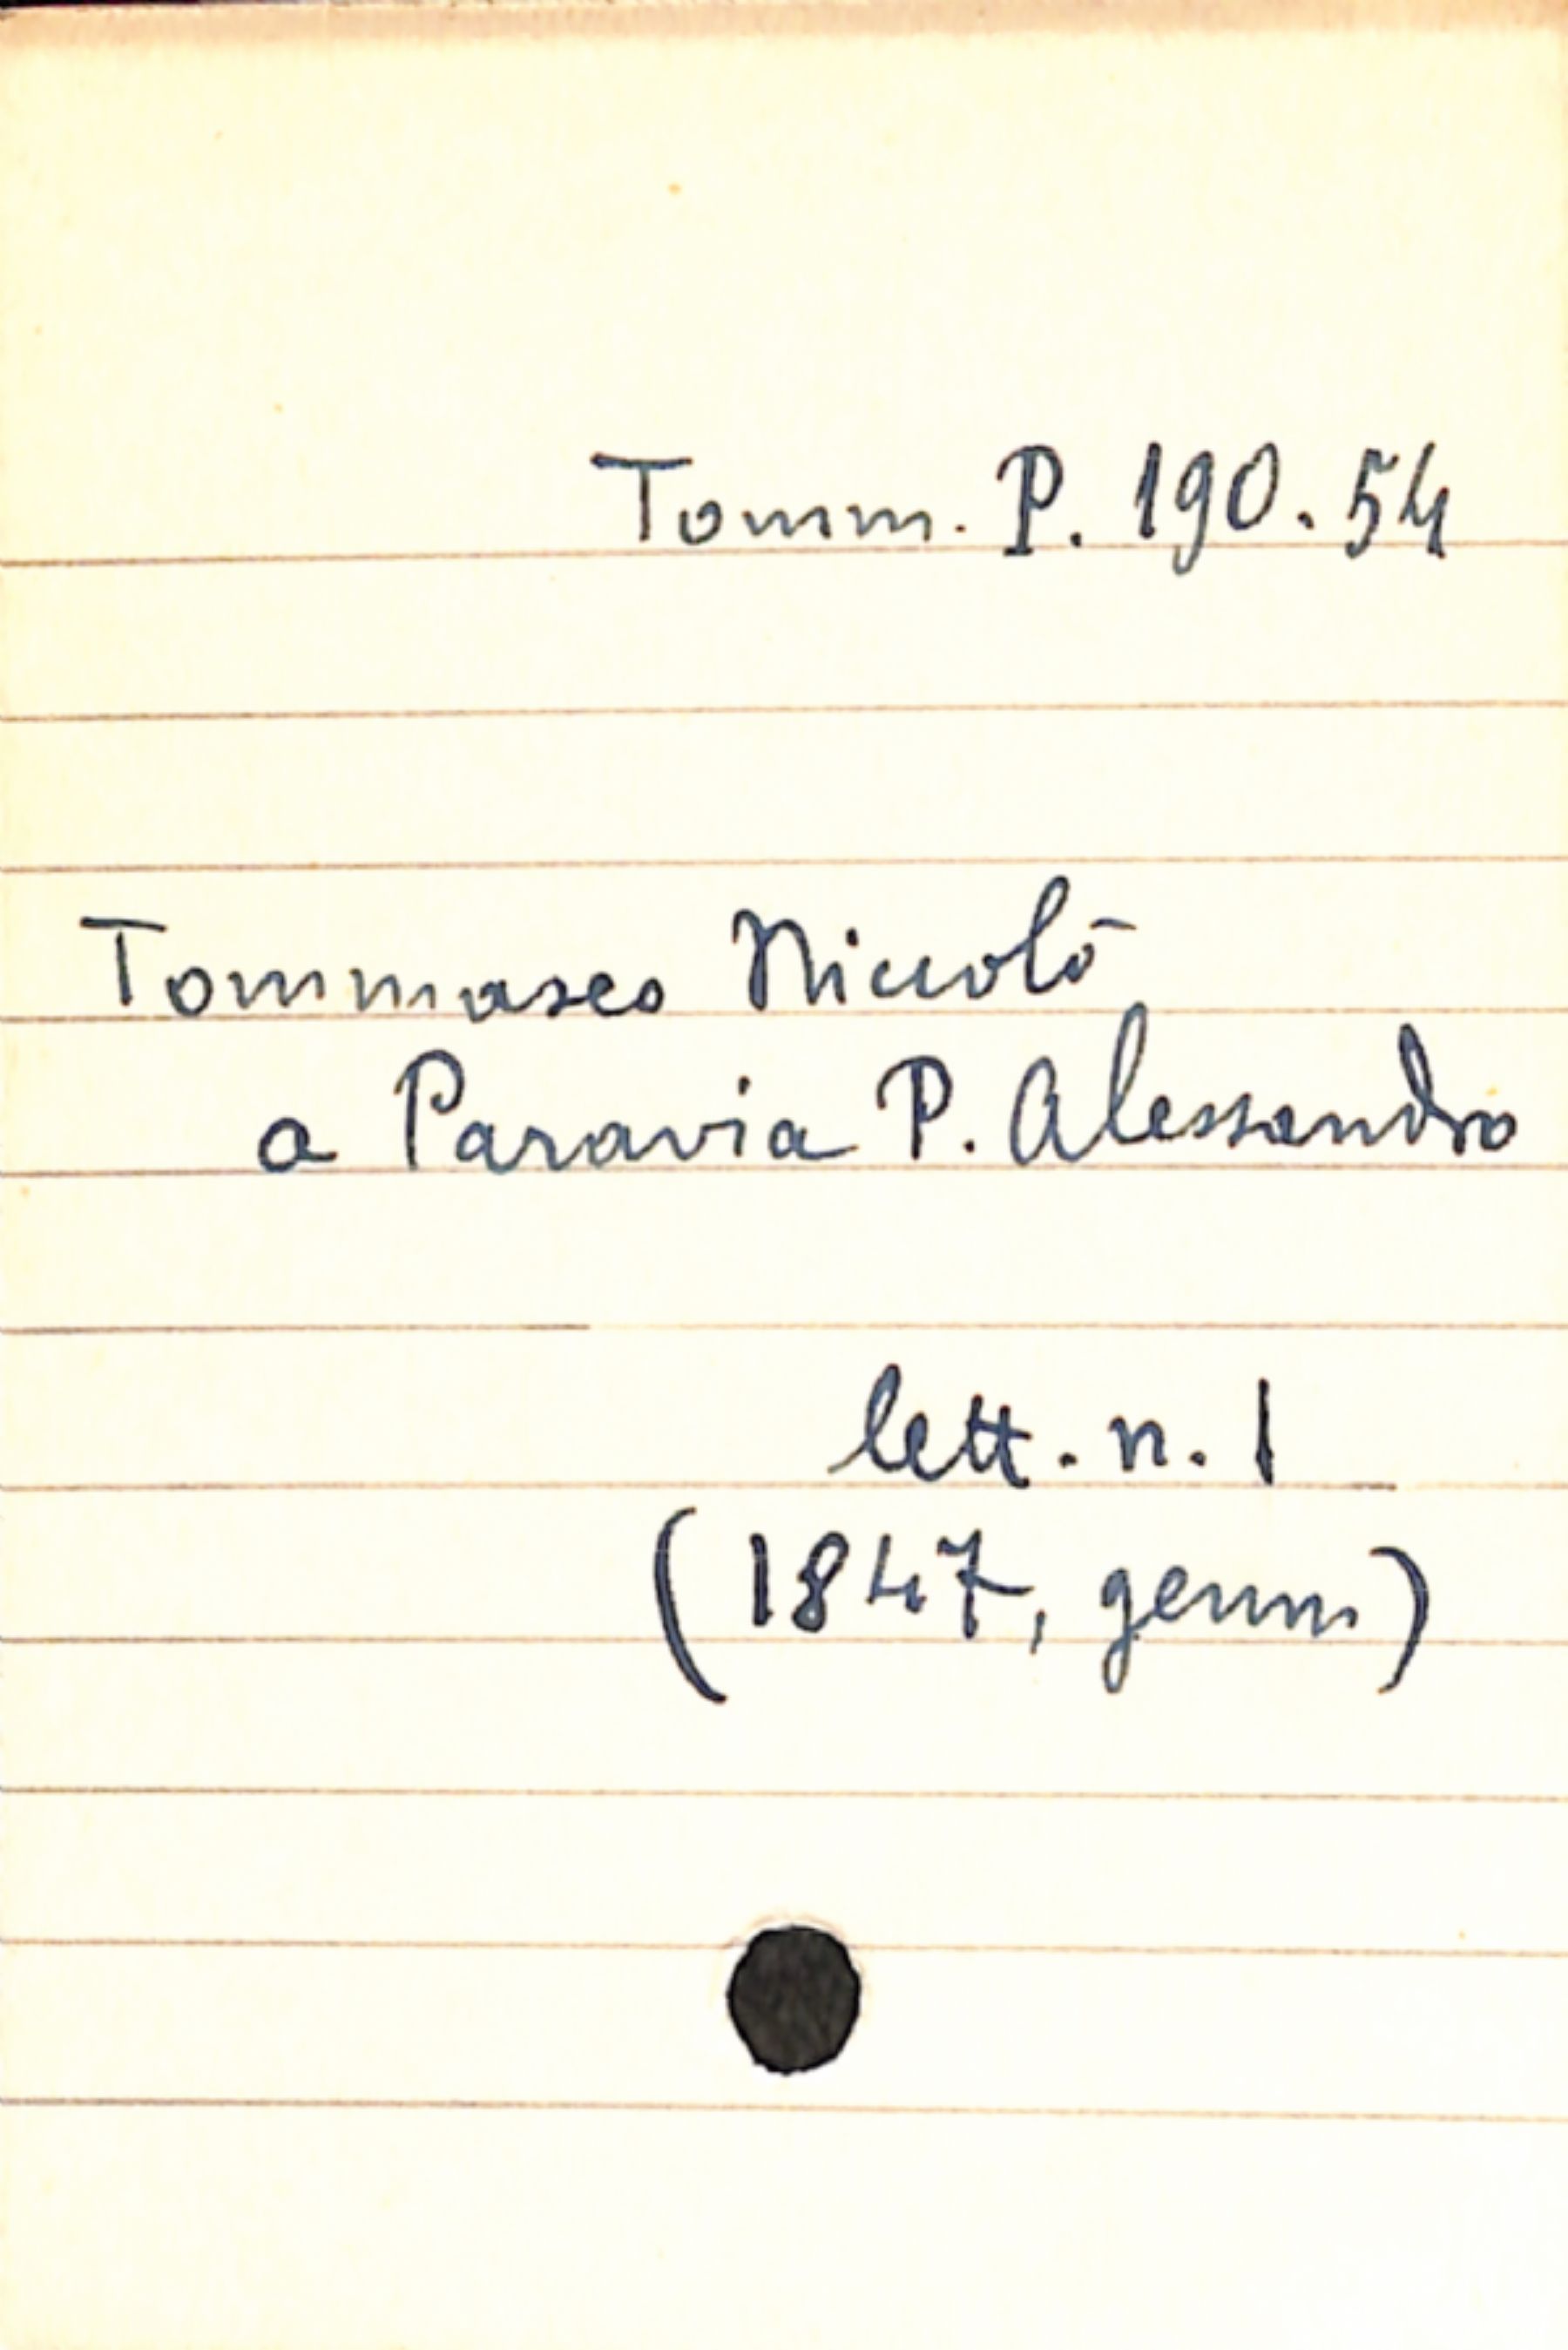 Tomm. P. 190.54
Tommaseo Niccolò
a Paravia P. Alessandro
lett. n. 1
(1847, genn.)